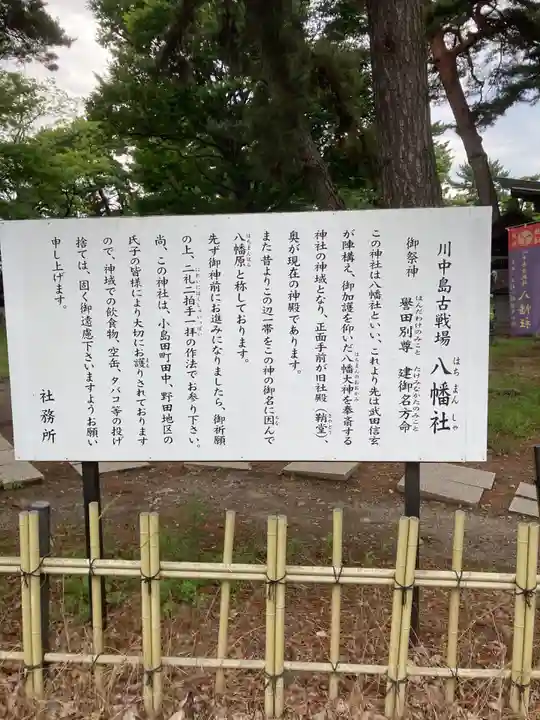 川中島古戦場 八幡社
はち まん しゃ
御祭神 誉田別尊 建御名方命
ほんだわけのみこと たけみなかたのみこと
この神社は八幡社といい、これより先は武田信玄
が陣構え、御加護を仰いだ八幡大神を奉斎する
はちまんのおおかみ
神社の神域となり、正面手前が旧社殿(鞘堂)、
さやどう
奥が現在の神殿であります。
また昔よりこの辺一帯をこの神の御名に因んで
八幡原と称しております。
はちまんぱら
先ず御神前にお進みになりましたら、御祈願
の上、二礼二拍手一拝の作法でお参り下さい。
尚、この神社は、小島田町田中、野田地区の
氏子の皆様により大切にお護りされております
ので、神域での飲食物、空缶、タバコ等の投げ
捨ては、固く御遠慮下さいますようお願い
申し上げます。
社務所
八幡社